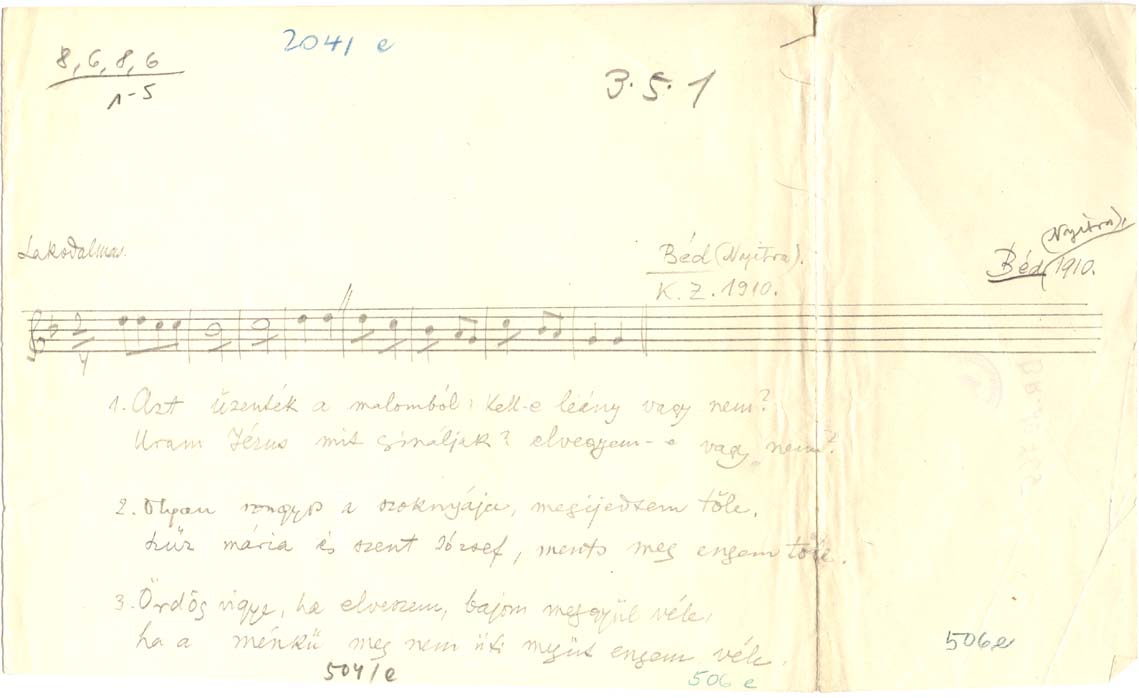 8, 6, 8, 6
1-5
2041 e
3·5·1
Lakodalmas.
Béd (Nyitra).
K. Z. 1910.
(Nyitra).
Béd 1910.
1. Azt üzenték a malomból: kell-e leány vagy nem?
Uram Jézus mit csináljak? elvegyem-e vagy nem?
2. Olyan rongyos a szoknyája, megijedtem tőle,
szűz mária és szent József, ments meg engem tőle.
3. Ördög vigye, ha elveszem, bajom meggyűl véle,
ha a ménkű meg nem üti megüt engem véle.
504/e
506 e
506e